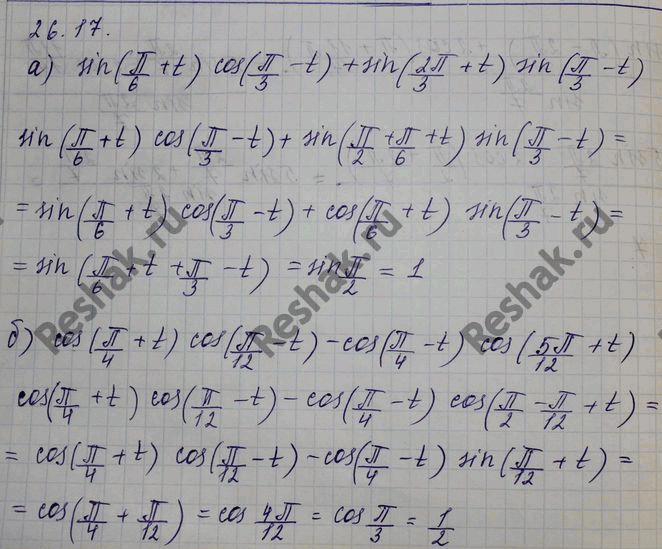 26.17.
а) sin(π/6 + t) cos(π/3 - t) + sin(2π/3 + t) sin(π/3 - t)
sin(π/6 + t) cos(π/3 - t) + sin(π/2 + π/6 + t) sin(π/3 - t) =
= sin(π/6 + t) cos(π/3 - t) + cos(π/6 + t) sin(π/3 - t) =
= sin(π/6 + t + π/3 - t) = sin π/2 = 1
б) cos(π/4 + t) cos(π/12 - t) - cos(π/4 - t) cos(5π/12 + t)
cos(π/4 + t) cos(π/12 - t) - cos(π/4 - t) cos(π/2 - π/12 + t) =
= cos(π/4 + t) cos(π/12 - t) - cos(π/4 - t) sin(π/12 + t) =
= cos(π/4 + π/12) = cos 4π/12 = cos π/3 = 1/2
Reshak.ru
Reshak.ru
Reshak.ru